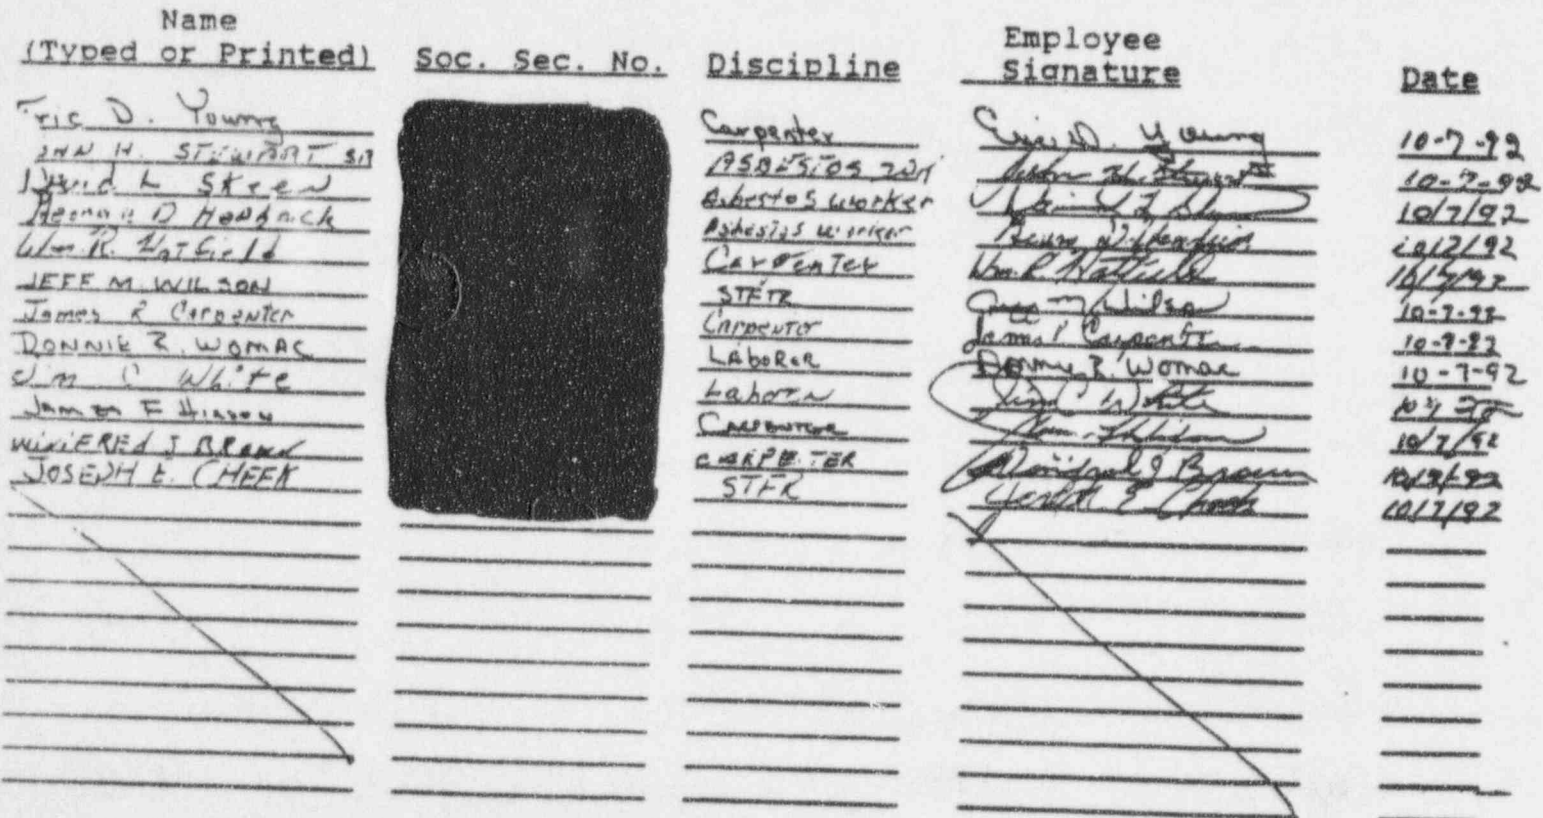 Name
(Typed or Printed) Soc. Sec. No. Discipline Employee Signature Date
Eric D. Young Carpenter Eric D. Young 10-7-92
H. STEWART SR ASBESTOS 10-7-92
David L Skeen Asbestos worker 10/7/92
D Asbestos worker 10/7/92
Wm. R. Hatfield Carpenter Wm. R Hatfield 10/7/92
JEFF M. WILSON STFTR Jeff M Wilson 10-7-92
James R Carpenter Carpenter James R Carpenter 10-7-92
DONNIE R. WOMAC LABORER Donnie R. Womac 10-7-92
Jim C White Laborer Jim C White
James F Hinson Carpenter 10/7/92
WINIFRED J BROWN CARPE TER Winifred J Brown 10/7/92
JOSEPH E. CHEEK STFR Joseph E. Cheek 10/7/92